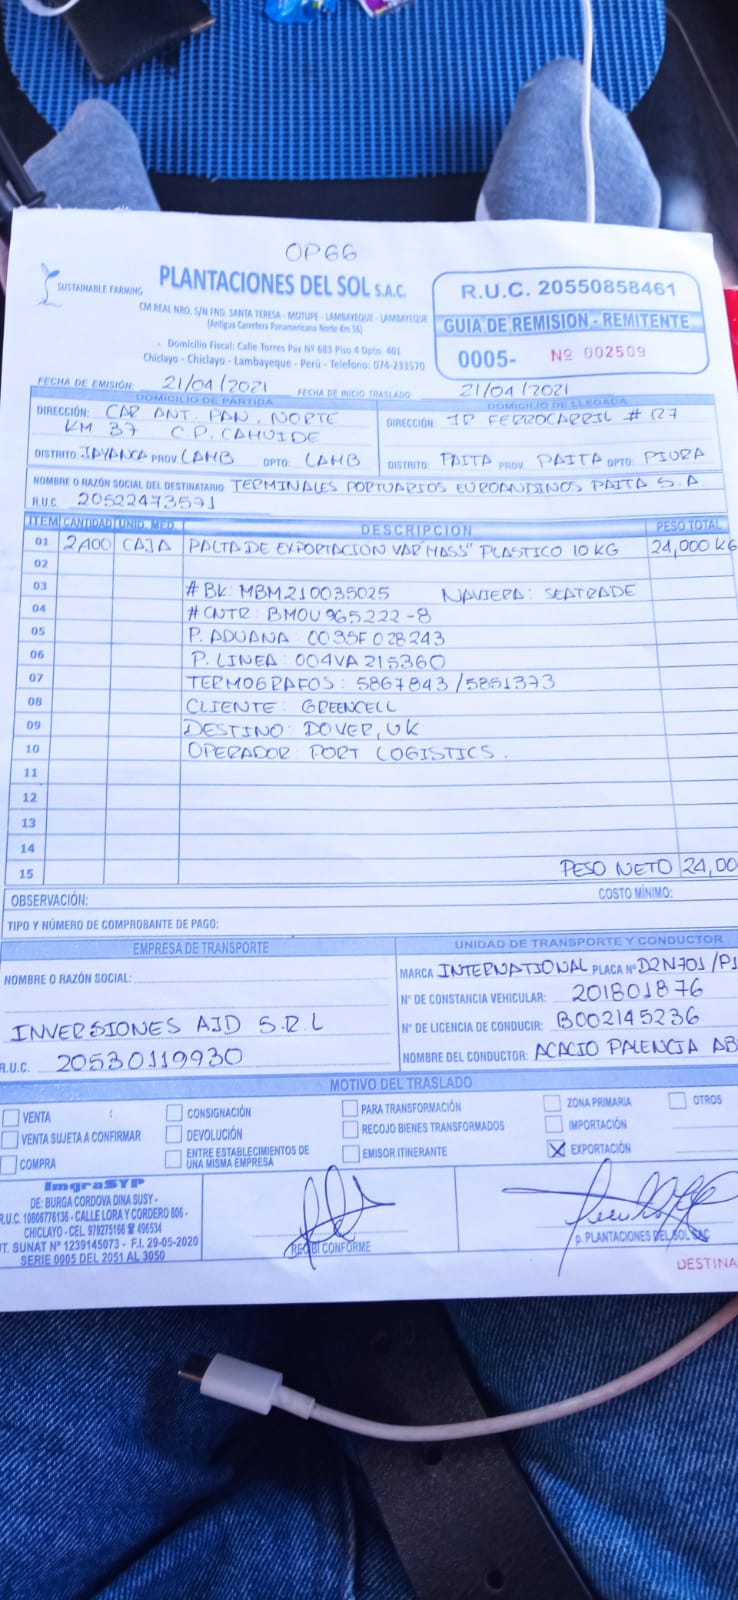 OP66
SUSTAINABLE FARMING
PLANTACIONES DEL SOL S.A.C.
CM REAL NRO. S/N FND. SANTA TERESA - MOTUPE - LAMBAYEQUE - LAMBAYEQUE
(Antigua Carretera Panamericana Norte Km 56)
Domicilio Fiscal: Calle Torres Paz Nº 683 Piso 4 Dpto. 401
Chiclayo - Chiclayo - Lambayeque - Perú - Telefono: 074-233570
R.U.C. 20550858461
GUIA DE REMISION - REMITENTE
0005- Nº 002509
FECHA DE EMISIÓN: 21/04/2021 FECHA DE INICIO TRASLADO: 21/04/2021
DOMICILIO DE PARTIDA
DIRECCIÓN: CAR ANT. PAN. NORTE
KM 37 C.P. CAHUIDE
DISTRITO: JAYANCA PROV. LAMB DPTO: LAMB
DOMICILIO DE LLEGADA
DIRECCIÓN: JR FERROCARRIL # 127
DISTRITO: PAITA PROV. PAITA DPTO: PIURA
NOMBRE O RAZÓN SOCIAL DEL DESTINATARIO TERMINALES PORTUARIOS EUROANDINOS PAITA S.A.
R.U.C. 20522473571
ITEM CANTIDAD UNID. MED. DESCRIPCION PESO TOTAL
01 2,400 CAJA PALTA DE EXPORTACION VAR "HASS" PLASTICO 10 KG 24,000 KG
02
03 # BK: MBM210035025 NAVIERA: SEATRADE
04 # CNTR: BMOU 965222-8
05 P. ADUANA: 0035F028243
06 P. LINEA: 004VA215360
07 TERMOGRAFOS: 5867843 / 5851373
08 CLIENTE: GREENCELL
09 DESTINO: DOVER, UK
10 OPERADOR: PORT LOGISTICS.
11
12
13
14
15 PESO NETO 24,00
OBSERVACIÓN: COSTO MÍNIMO:
TIPO Y NÚMERO DE COMPROBANTE DE PAGO:
EMPRESA DE TRANSPORTE
NOMBRE O RAZÓN SOCIAL:
INVERSIONES AJD S.R.L
R.U.C. 20530119930
UNIDAD DE TRANSPORTE Y CONDUCTOR
MARCA INTERNATIONAL PLACA Nº D2N701 /P1
Nº DE CONSTANCIA VEHICULAR: 201801876
Nº DE LICENCIA DE CONDUCIR: B002145236
NOMBRE DEL CONDUCTOR: ACACIO PALENCIA AB
MOTIVO DEL TRASLADO
VENTA CONSIGNACIÓN PARA TRANSFORMACIÓN ZONA PRIMARIA OTROS
VENTA SUJETA A CONFIRMAR DEVOLUCIÓN RECOJO BIENES TRANSFORMADOS IMPORTACIÓN
COMPRA ENTRE ESTABLECIMIENTOS DE UNA MISMA EMPRESA EMISOR ITINERANTE X EXPORTACIÓN
ImgraSYP
DE: BURGA CORDOVA DINA SUSY -
R.U.C. 10806776136 - CALLE LORA Y CORDERO 806 -
CHICLAYO - CEL. 979275166 ☎ 496534
UT. SUNAT Nº 1239145073 - F.I. 29-05-2020
SERIE 0005 DEL 2051 AL 3050
RECIBÍ CONFORME
p. PLANTACIONES DEL SOL SAC
DESTINA